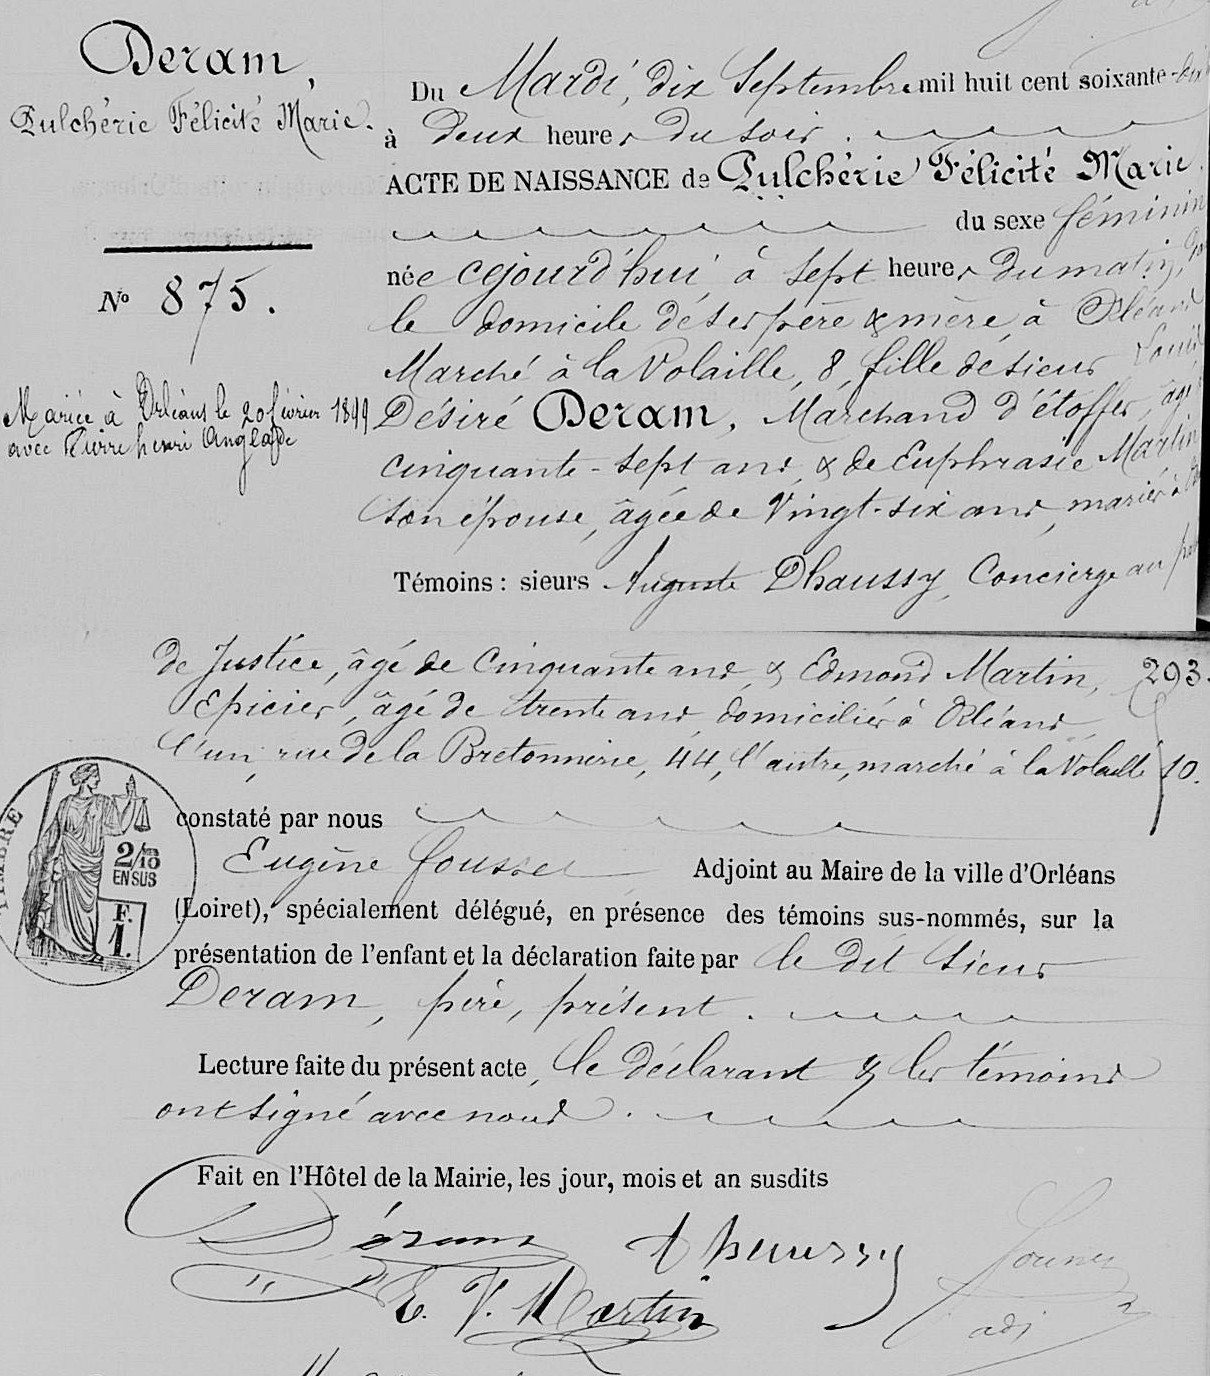 Deram,
Pulchérie Félicité Marie.
Nº 875.
Mariée à Orléans le 20 février 1899
avec Pierre henri Anglade
Du Mardi, dix Septembre mil huit cent soixante-dix
à deux heures du soir.
ACTE DE NAISSANCE de Pulchérie Félicité Marie
du sexe féminin
née cejourd'hui, à sept heures du matin,
le domicile de ses père & mère, à Orléans
Marché à la Volaille, 8, fille de sieur Louis
Désiré Deram, Marchand d'étoffes, âgé
cinquante-sept ans, & de Euphrasie Martin
son épouse, âgée de Vingt-six ans, mariés à
Témoins : sieurs Auguste Dhaussy, Concierge au
de Justice, âgé de Cinquante ans, & Edmond Martin, 293.
Epicier, âgé de trente ans, domiciliés à Orléans
l'un, rue de la Bretonnerie, 44, l'autre, marché à la Volaille 10.
TIMBRE
2/10 EN SUS
F. 1.
constaté par nous
Eugène Fousset Adjoint au Maire de la ville d'Orléans
(Loiret), spécialement délégué, en présence des témoins sus-nommés, sur la
présentation de l'enfant et la déclaration faite par le dit sieur
Deram, père, présent.
Lecture faite du présent acte, le déclarant & les témoins
ont signé avec nous.
Fait en l'Hôtel de la Mairie, les jour, mois et an susdits
Déram dhaussy
E. V. Martin
adj